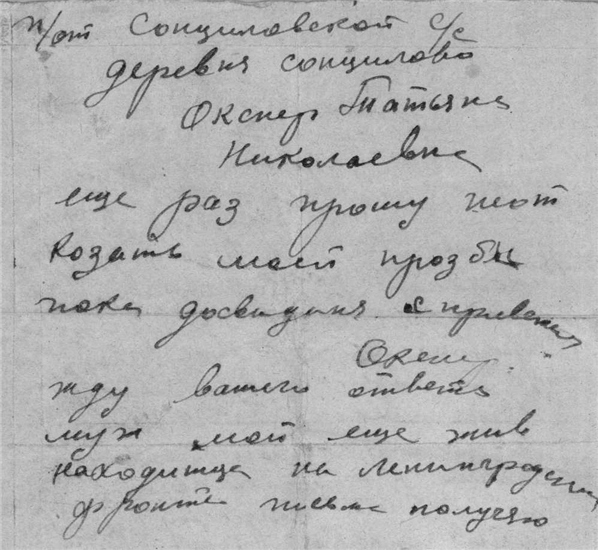 п/от Сонциловской с/с
деревня сонцилово
Окснер Татьяна
Николаевна
еще раз прошу неот
козать моей прозбы
пока досвиданя с приветом
жду вашего ответа
муж мой еще жив
находитца на Ленинградском
фронте письма получаю